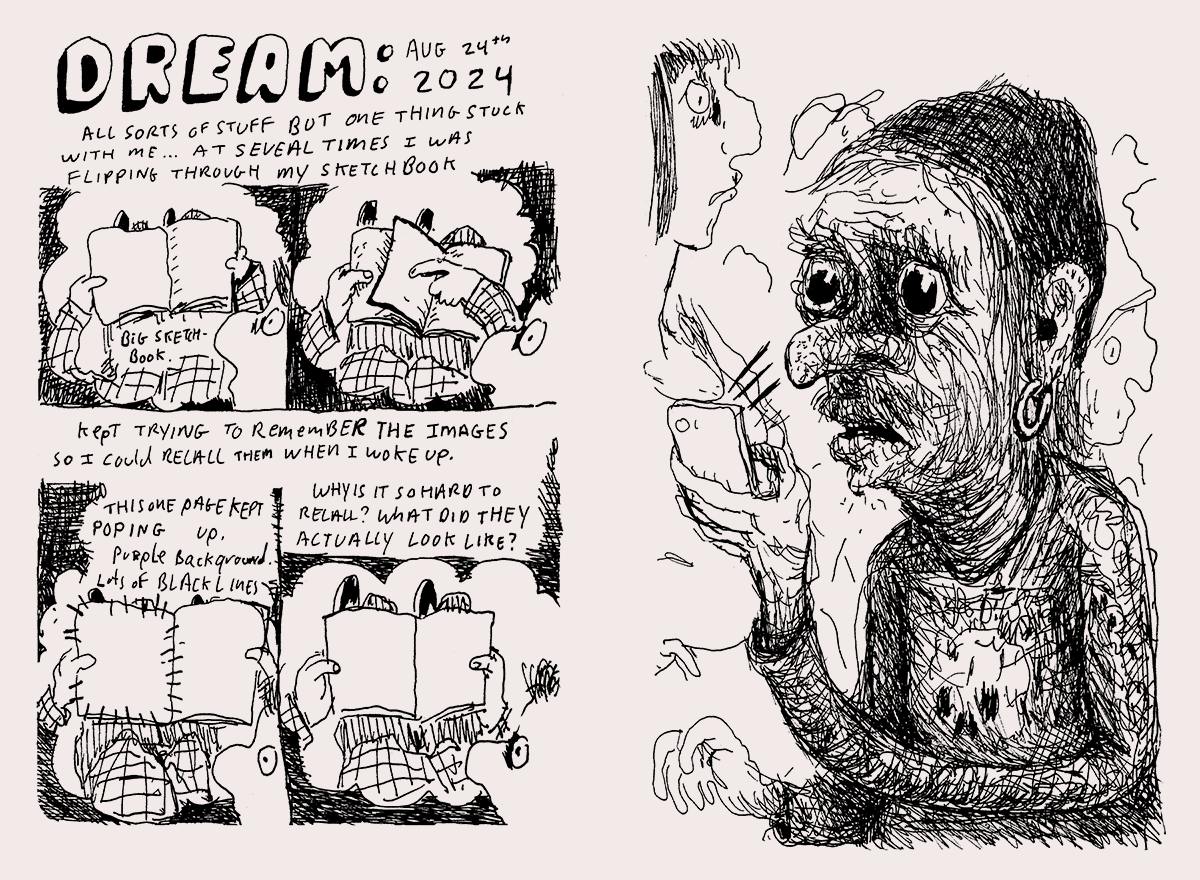 DREAM: AUG 24th
2024
ALL SORTS OF STUFF BUT ONE THING STUCK
WITH ME... AT SEVERAL TIMES I WAS
FLIPPING THROUGH MY SKETCHBOOK
BIG SKETCH-
BOOK.
KEPT TRYING TO REMEMBER THE IMAGES
SO I COULD RELALL THEM WHEN I WOKE UP.
THIS ONE PAGE KEPT
POPING UP.
PURPLE BACKGROUND.
LOTS OF BLACK LINES
WHY IS IT SO HARD TO
RELALL? WHAT DID THEY
ACTUALLY LOOK LIKE?